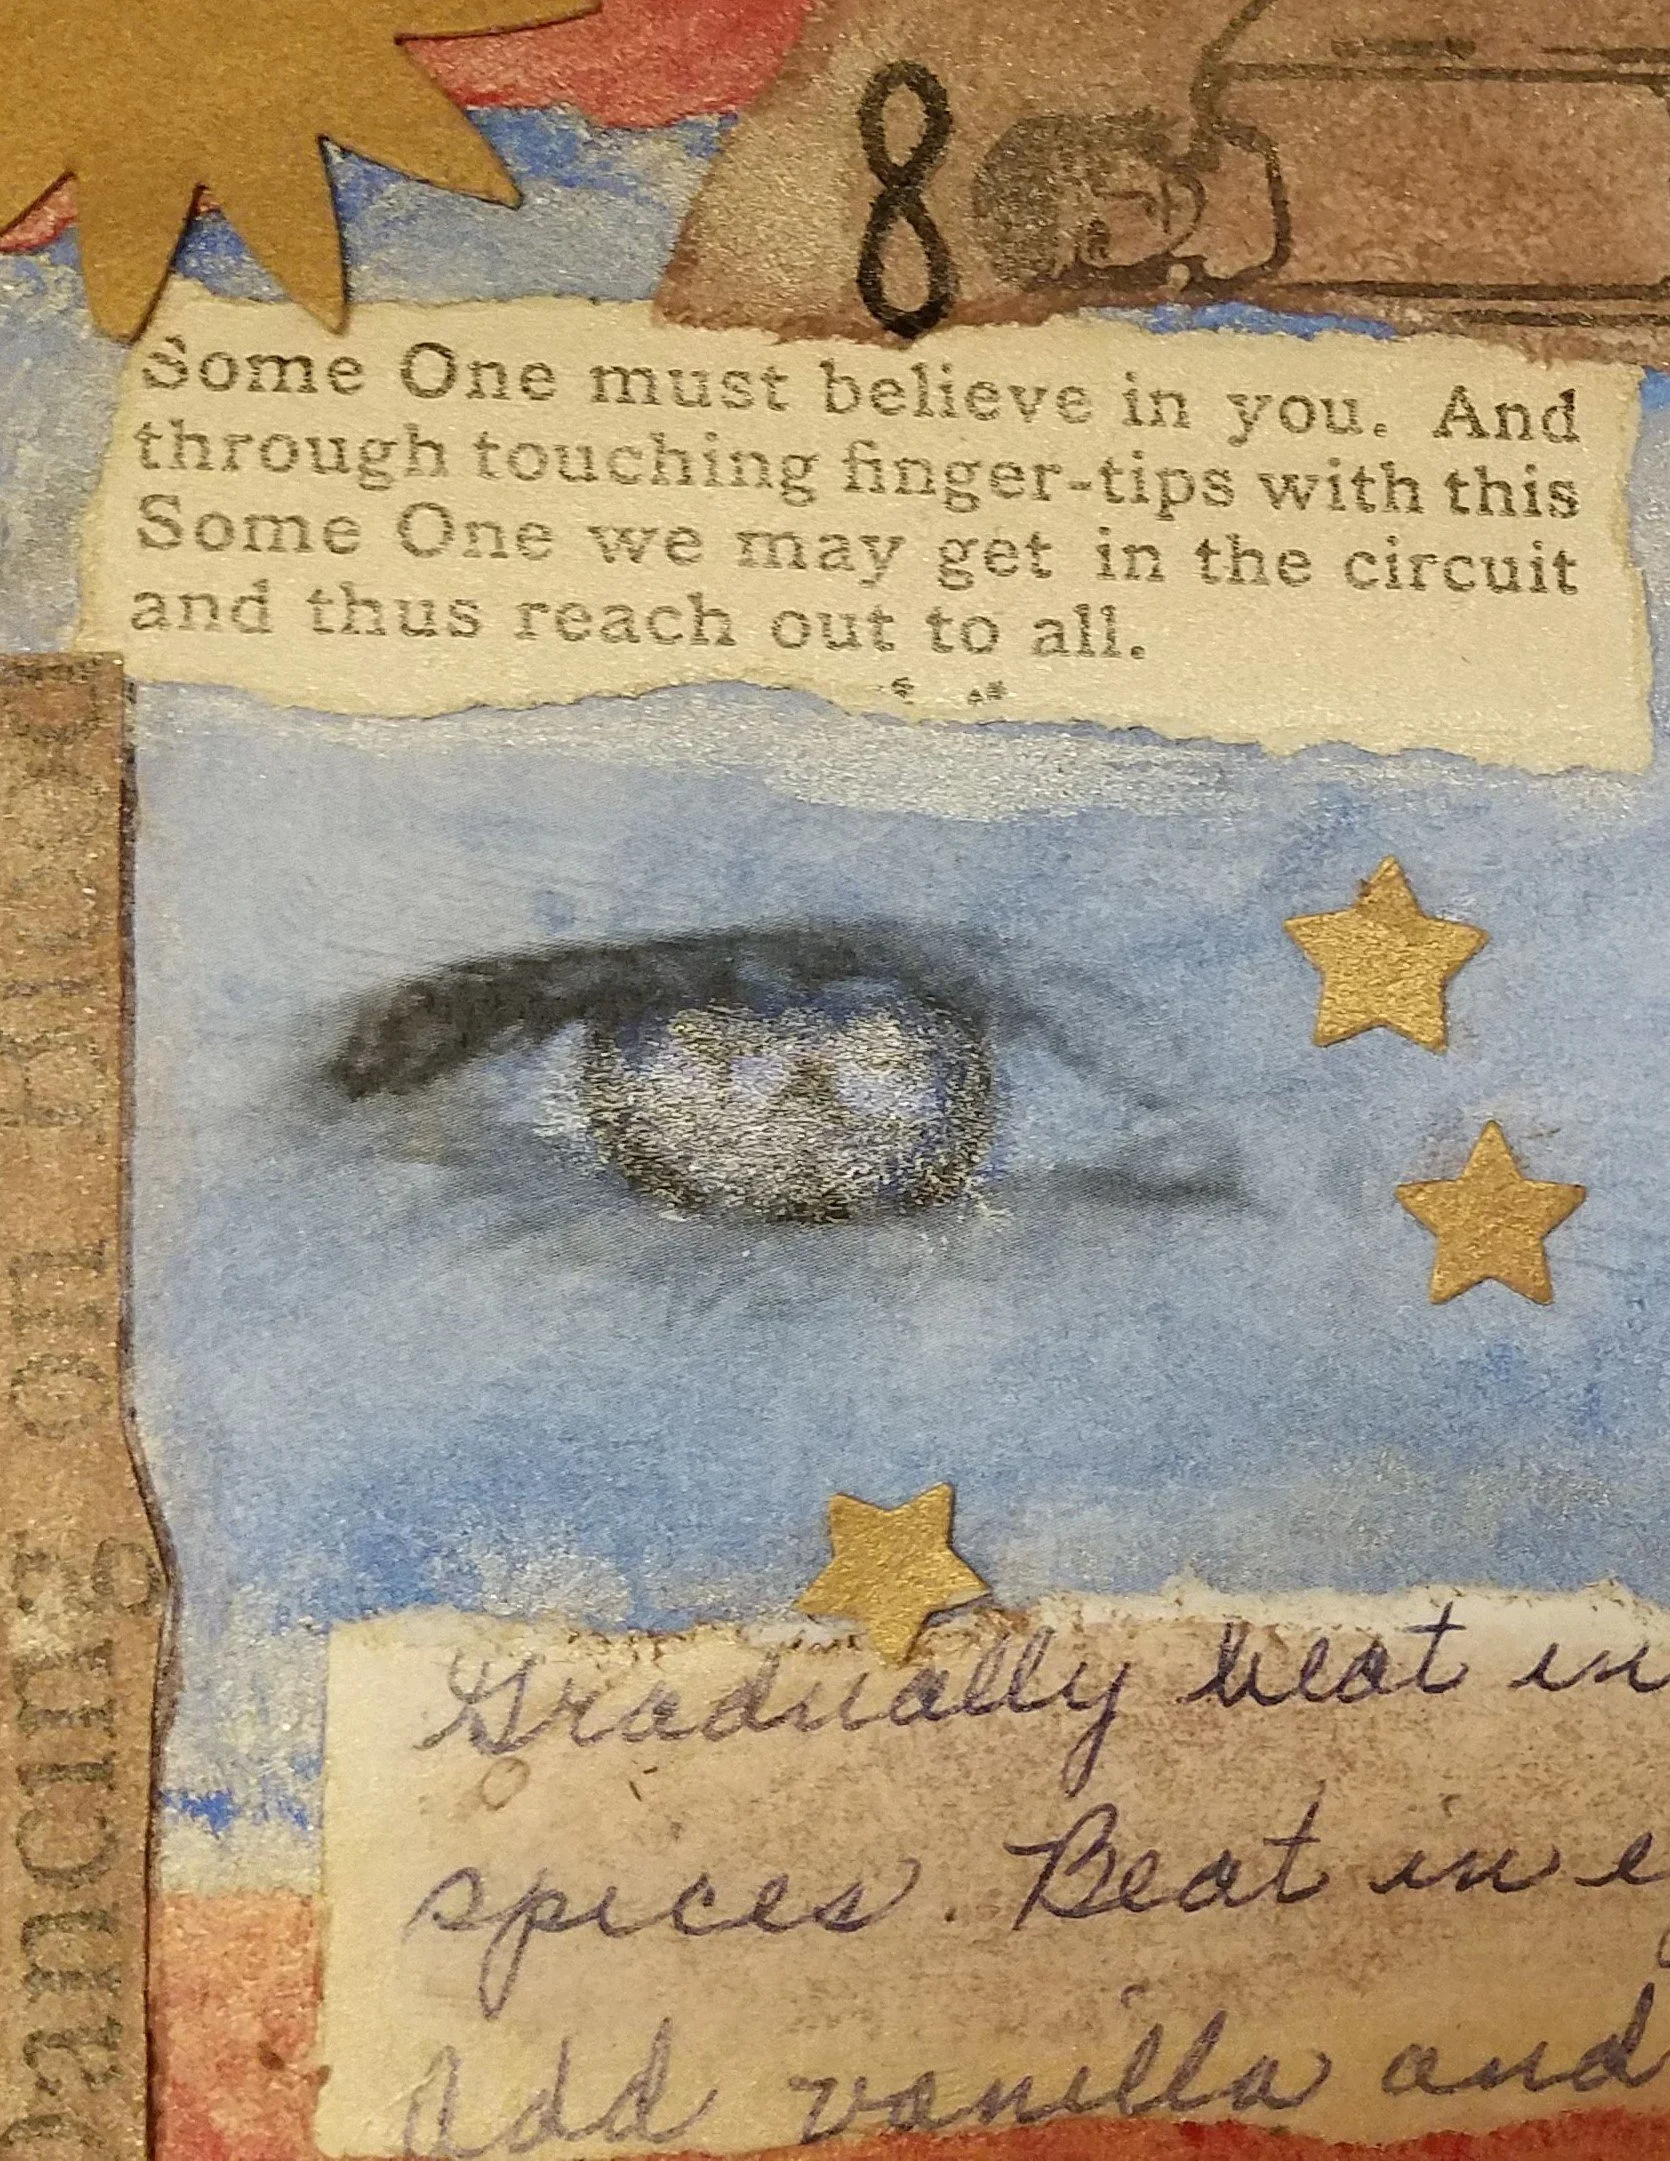 8
Some One must believe in you. And
through touching finger-tips with this
Some One we may get in the circuit
and thus reach out to all.
Gradually beat in
spices. Beat in
Add vanilla and
ancing on